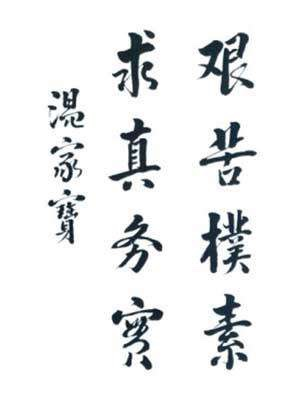 艰苦樸素
求真务实
温家寶